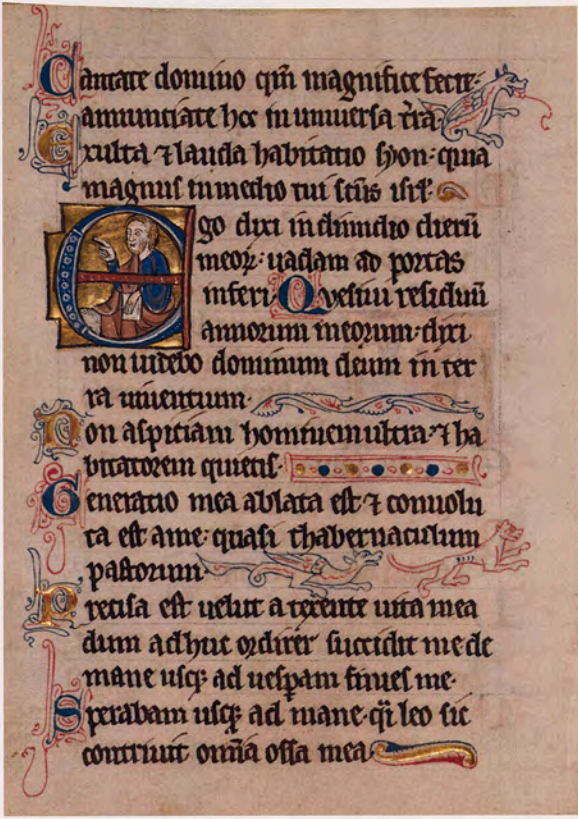 Cantate domino qm̄ magnifice fecit:
annunciate hec in universa t̄ra·
Exulta ⁊ lauda habitatio syon: quia
magnus in medio tui sc̄us isrl̄·
Ego dixi in dimidio dierū
meoꝝ: vadam ad portas
inferi· Quesivi residuū
annorum meorum· dixi
non videbo dominum deum in ter
ra viventium·
Non aspiciam hominem ultra· ⁊ ha
bitatorem quietis·
Generatio mea ablata est ⁊ convolu
ta est a me: quasi thabernaculum
pastorum·
Precisa est velut a texente vita mea
dum adhuc ordirer succidit me de
mane usqꝫ ad vesꝑam finies me·
Sperabam usqꝫ ad mane· qͥ leo sic
contrivit om̄ia ossa mea